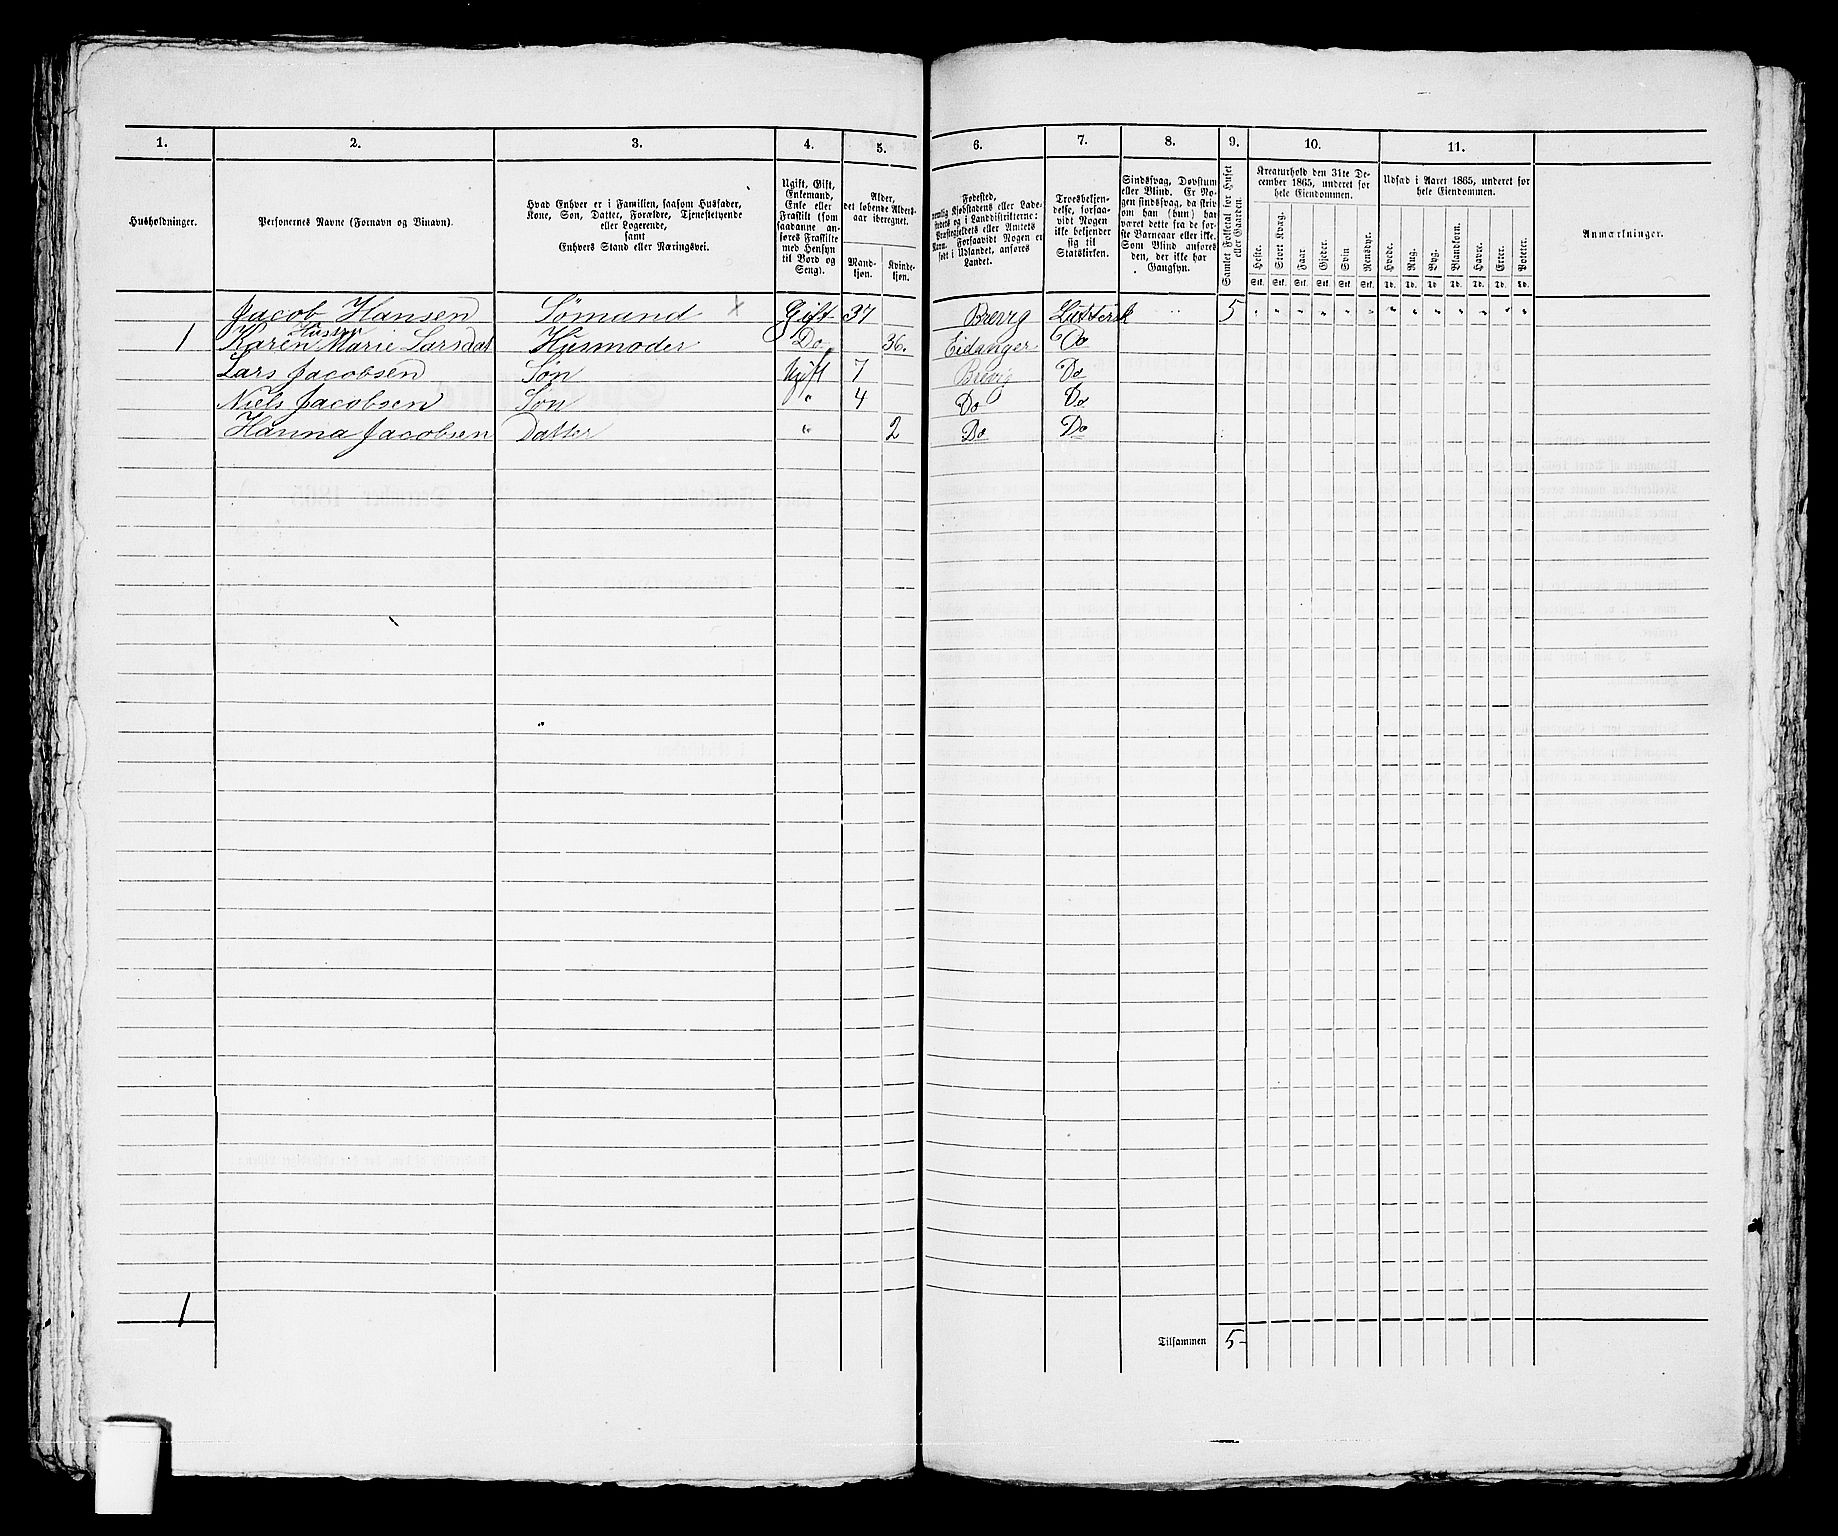 1. 2. 3. 4. 5. 6. 7. 8. 9. 10. 11.
Husholdninger.
Personernes Navne (Fornavn og Binavn).
Hvad Enhver er i Familien, saasom Husfader,
Kone, Søn, Datter, Forældre, Tjenestetyende
eller Logerende,
samt
Enhvers Stand eller Næringsvei.
Ugift, Gift,
Enkemand,
Enke eller
Fraskilt (som
saadanne an-
føres Fraskilte
med Hensyn
til Bord og
Seng).
Alder,
det løbende Alders-
aar iberegnet.
Mand-
kjøn.
Kvinde-
kjøn.
Fødested,
nemlig Kjøbstadens eller Lade-
stedets og i Landdistrikterne:
Præstegjeldets eller Amtets
Navn. Forsaavidt Nogen er
født i Udlandet, anføres
Landet.
Troesbekjen-
delse, forsaa-
vidt Nogen
ikke bekjender
sig til
Statskirken.
Sindssvag, Døvstum
eller Blind. Er No-
gen sindssvag, da skriv
om han (hun) har
været dette fra de før-
ste Barneaar eller ikke.
Som Blind anføres
den, der ikke har
Gangsyn.
Samlet Folketal for Huset
eller Gaarden.
Kreaturhold den 31te De-
cember 1865, underet for
hele Eiendommen.
Heste. Stort Kvæg. Faar. Gjeder. Svin Rensdyr.
Stk. Stk. Stk. Stk. Stk. Stk.
Udsæd i Aaret 1865, underet for
hele Eiendommen.
Hvede. Rug. Byg. Blandkorn. Havre. Erter. Poteter.
Td. Td. Td Td. Td. Td. Td.
Anmærkninger.
Jacob Hansen Sømand Gift 37 Brevig Luthersk 5
Hustru
1 Karen Marie Larsdat Husmoder Do 36. Eidanger Do
Lars Jacobsen Søn Ugift 7 Brevig Do
Niels Jacobsen Søn " 4 Do Do
Hanna Jacobsen Datter " 2 Do Do
1
Tilsammen 5-